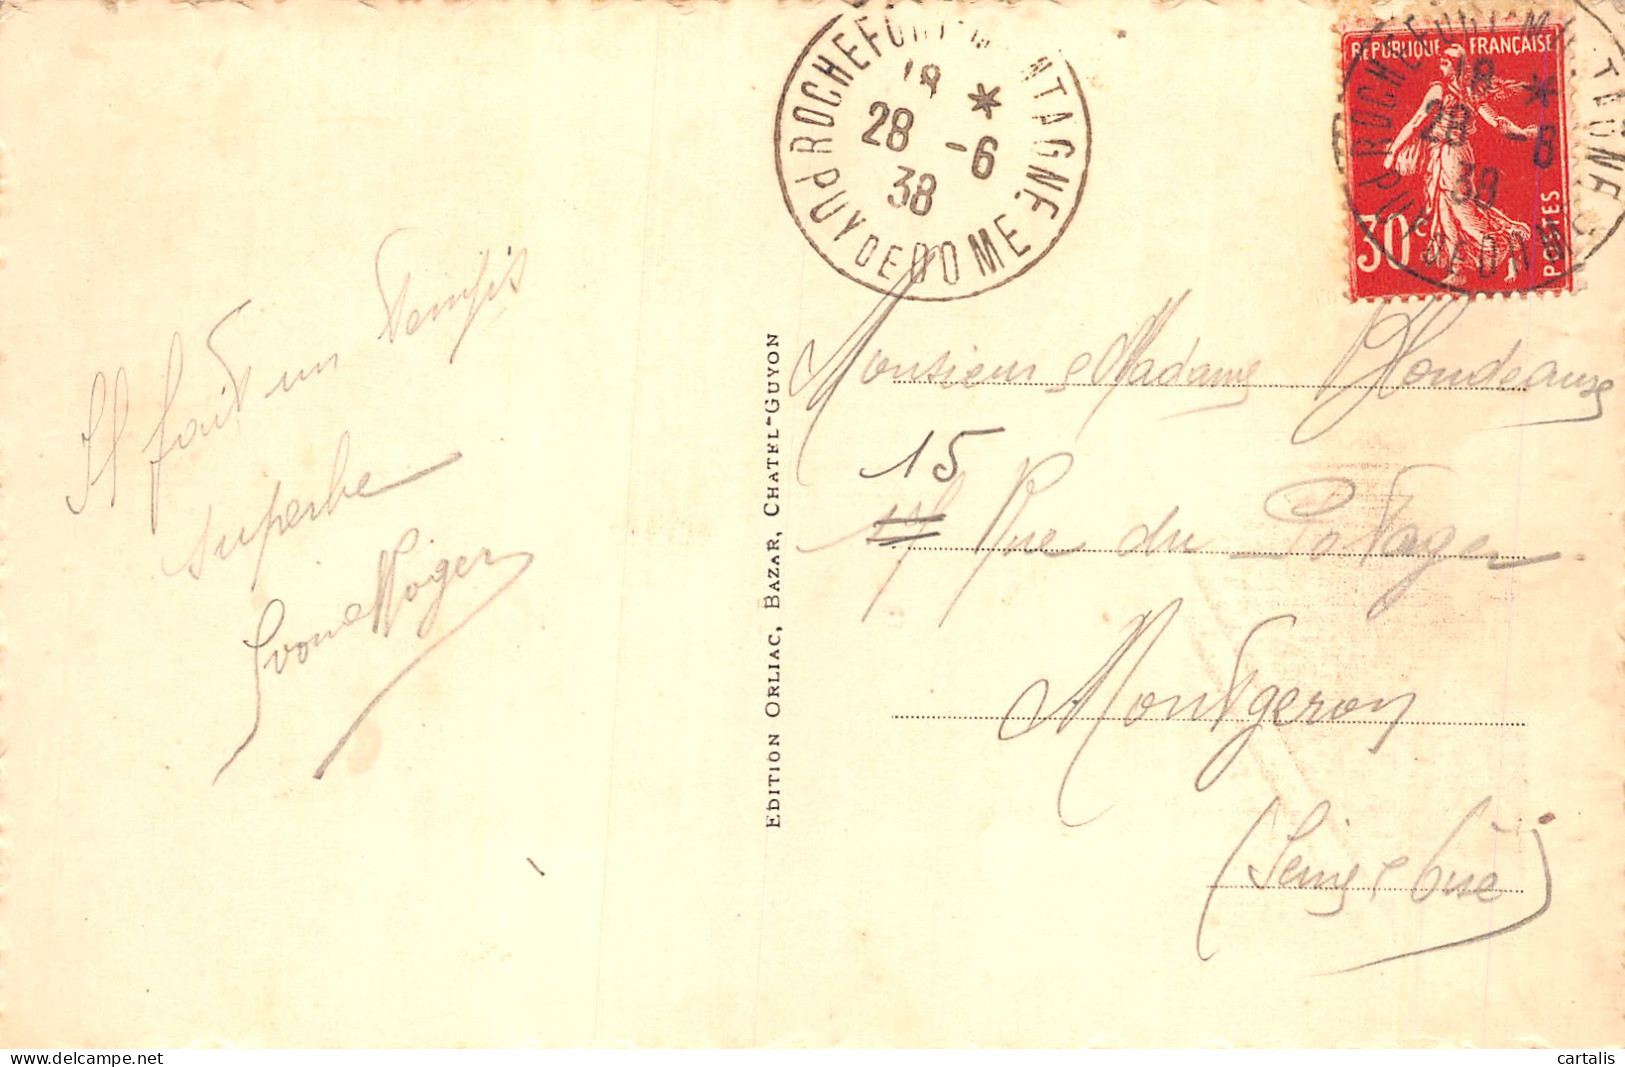 Il fait un temps
superbe
Yvonne Roger
EDITION ORLIAC, BAZAR, CHATEL-GUYON
ROCHEFORT MONTAGNE
18 *
28 -6
38
PUY DE DOME
REPUBLIQUE FRANÇAISE
30c
POSTES
ROCHEFORT MONTAGNE
18 *
28 -6
38
PUY DE DOME
Monsieur e Madame
15
17 Rue du Potager
Montgeron
(Seine e Oise)
cartalis